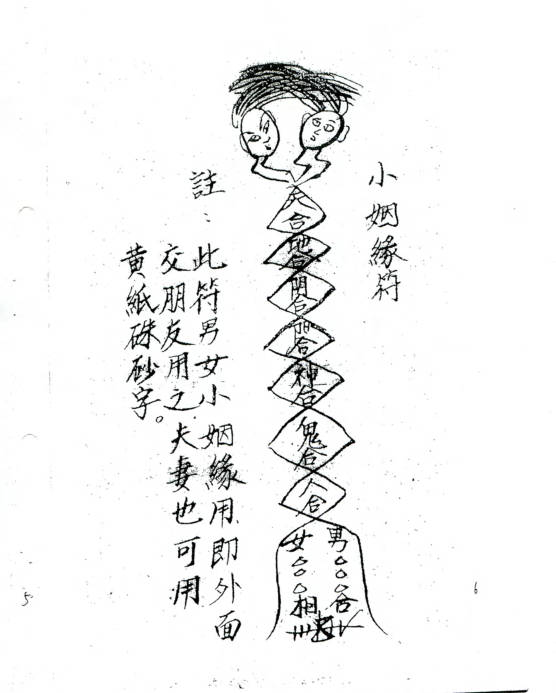 小姻緣符
天合
地合
神合
鬼合
人合
男○○○合
女○○○相
註：
此符男女小姻緣用即外面
交朋友用之.夫妻也可用
黄紙硃砂字。
6
5